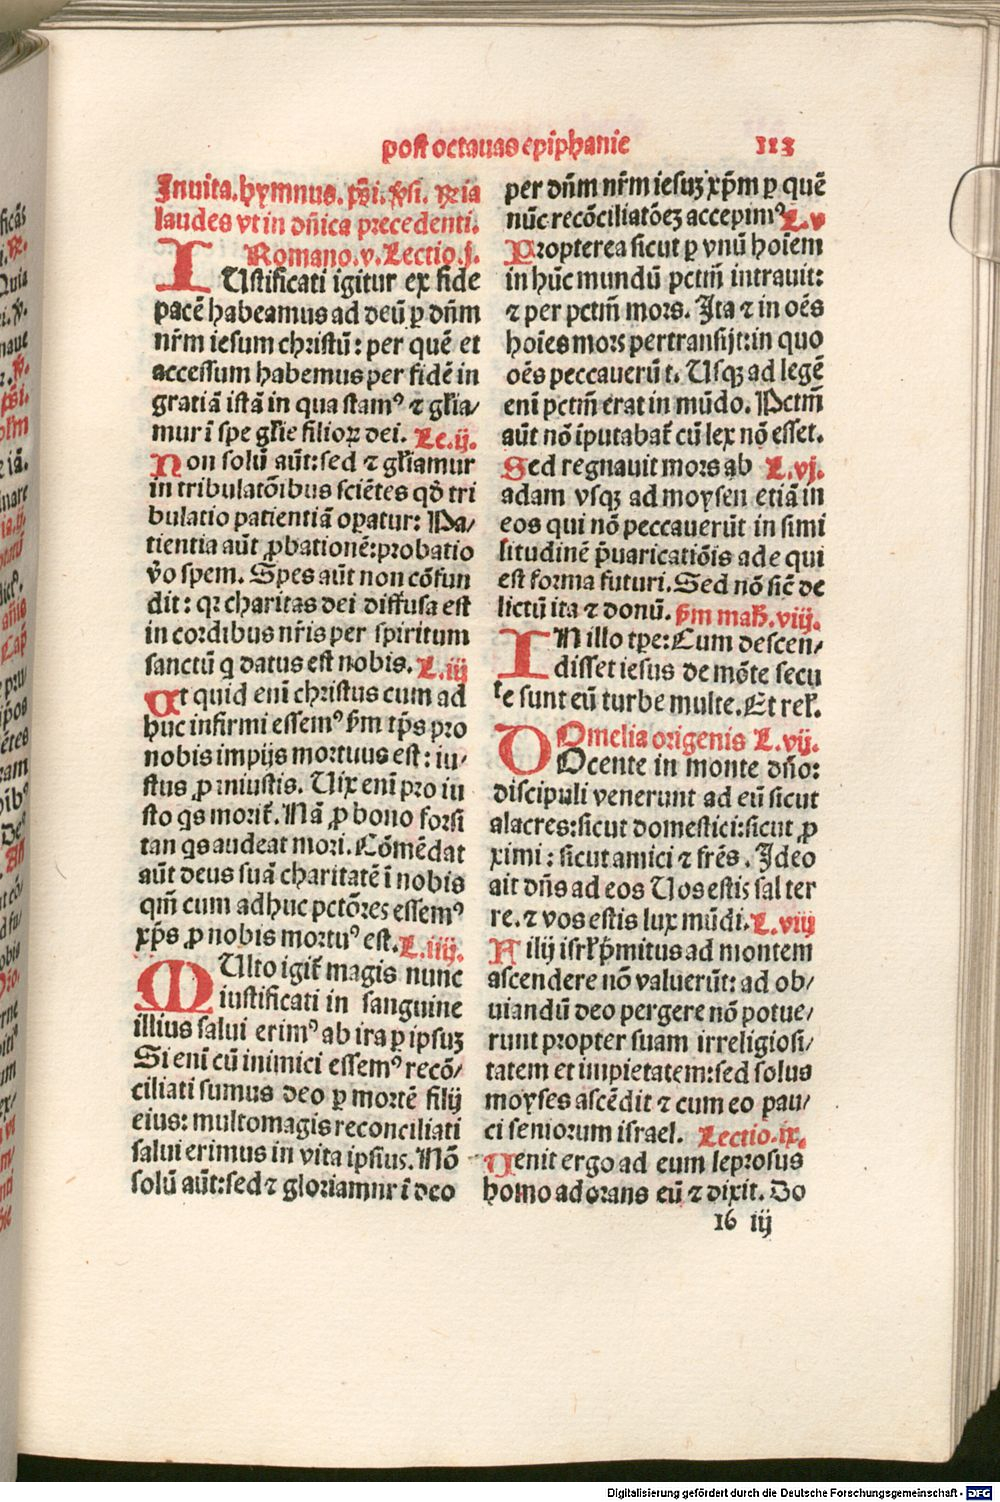 post octauas epiphanie 113
Inuita. hymnus. p̄si. v̄si. r̄ria
laudes vt in dn̄ica precedenti.
Romano. v. Lectio. j.
IUstificati igitur ex fide
pacē habeamus ad deū ꝑ dn̄m
nr̄m iesum christū: per quē et
accessum habemus per fidē in
gratiā istā in qua stamꝰ ⁊ gl̄ia/
mur ī spe gl̄ie filioꝝ dei. Le. ij.
Non solū aūt: sed ⁊ gl̄iamur
in tribulatōibus sciētes qd̄ tri
bulatio patientiā oꝑatur: Pa/
tientia aūt ꝓbationē: probatio
v̄o spem. Spes aūt non cōfun
dit: qꝛ charitas dei diffusa est
in cordibus nr̄is per spiritum
sanctū q datus est nobis. L. iij
At quid enī christus cum ad
huc infirmi essemꝰ ẜm tp̄s pro
nobis impijs mortuus est: iu/
stus ꝓ iniustis. Uix enī pro iu
sto qs morit̄. Nā ꝓ bono forsi
tan qs audeat mori. Cōmēdat
aūt deus suā charitatē ī nobis
qm̄ cum adhuc pctōres essemꝰ
xp̄s ꝓ nobis mortuꝰ est. L. iiij.
MUlto igit̄ magis nunc
iustificati in sanguine
illius salui erimꝰ ab ira ꝑ ipsuꝫ
Si enī cū inimici essemꝰ recō/
ciliati sumus deo ꝑ mortē filij
eius: multomagis reconciliati
salui erimus in vita ipsius. Nō
solū aūt: sed ⁊ gloriamur ī deo
per dn̄m nr̄m iesuꝫ xp̄m ꝑ quē
nūc recōciliatōeꝫ accepimꝰ L. v
Propterea sicut ꝑ vnū hoīem
in hūc mundū pctm̄ intrauit:
⁊ per pctm̄ mors. Ita ⁊ in oēs
hoīes mors pertransijt: in quo
oēs peccauerūt. Usqꝫ ad legē
enī pctm̄ erat in mūdo. Pctm̄
aūt nō īputabat̄ cū lex nō esset.
Sed regnauit mors ab L. vj.
adam vsqꝫ ad moysen etiā in
eos qui nō peccauerūt in simi
litudinē p̄uaricatiōis ade qui
est forma futuri. Sed nō sic̄ de
lictū ita ⁊ donū. ẜm math̄. viij.
IN illo tꝑe: Cum descen/
disset iesus de mōte secu
te sunt eū turbe multe. Et rel̄.
Omelia origenis L. vij.
DOcente in monte dn̄o:
discipuli venerunt ad eū sicut
alacres: sicut domestici: sicut ꝓ
ximi: sicut amici ⁊ frēs. Ideo
ait dn̄s ad eos Uos estis sal ter
re. ⁊ vos estis lux mūdi. L. viij
Filij isrl̄ p̄mitus ad montem
ascendere nō valuerūt: ad ob/
uiandū deo pergere nō potue/
runt propter suam irreligiosi/
tatem et impietatem: sed solus
moyses ascēdit ⁊ cum eo pau/
ci seniorum israel. Lectio. ix.
Uenit ergo ad eum leprosus
homo adorans eū ⁊ dixit. Do
16 iij
Digitalisierung gefördert durch die Deutsche Forschungsgemeinschaft - DFG